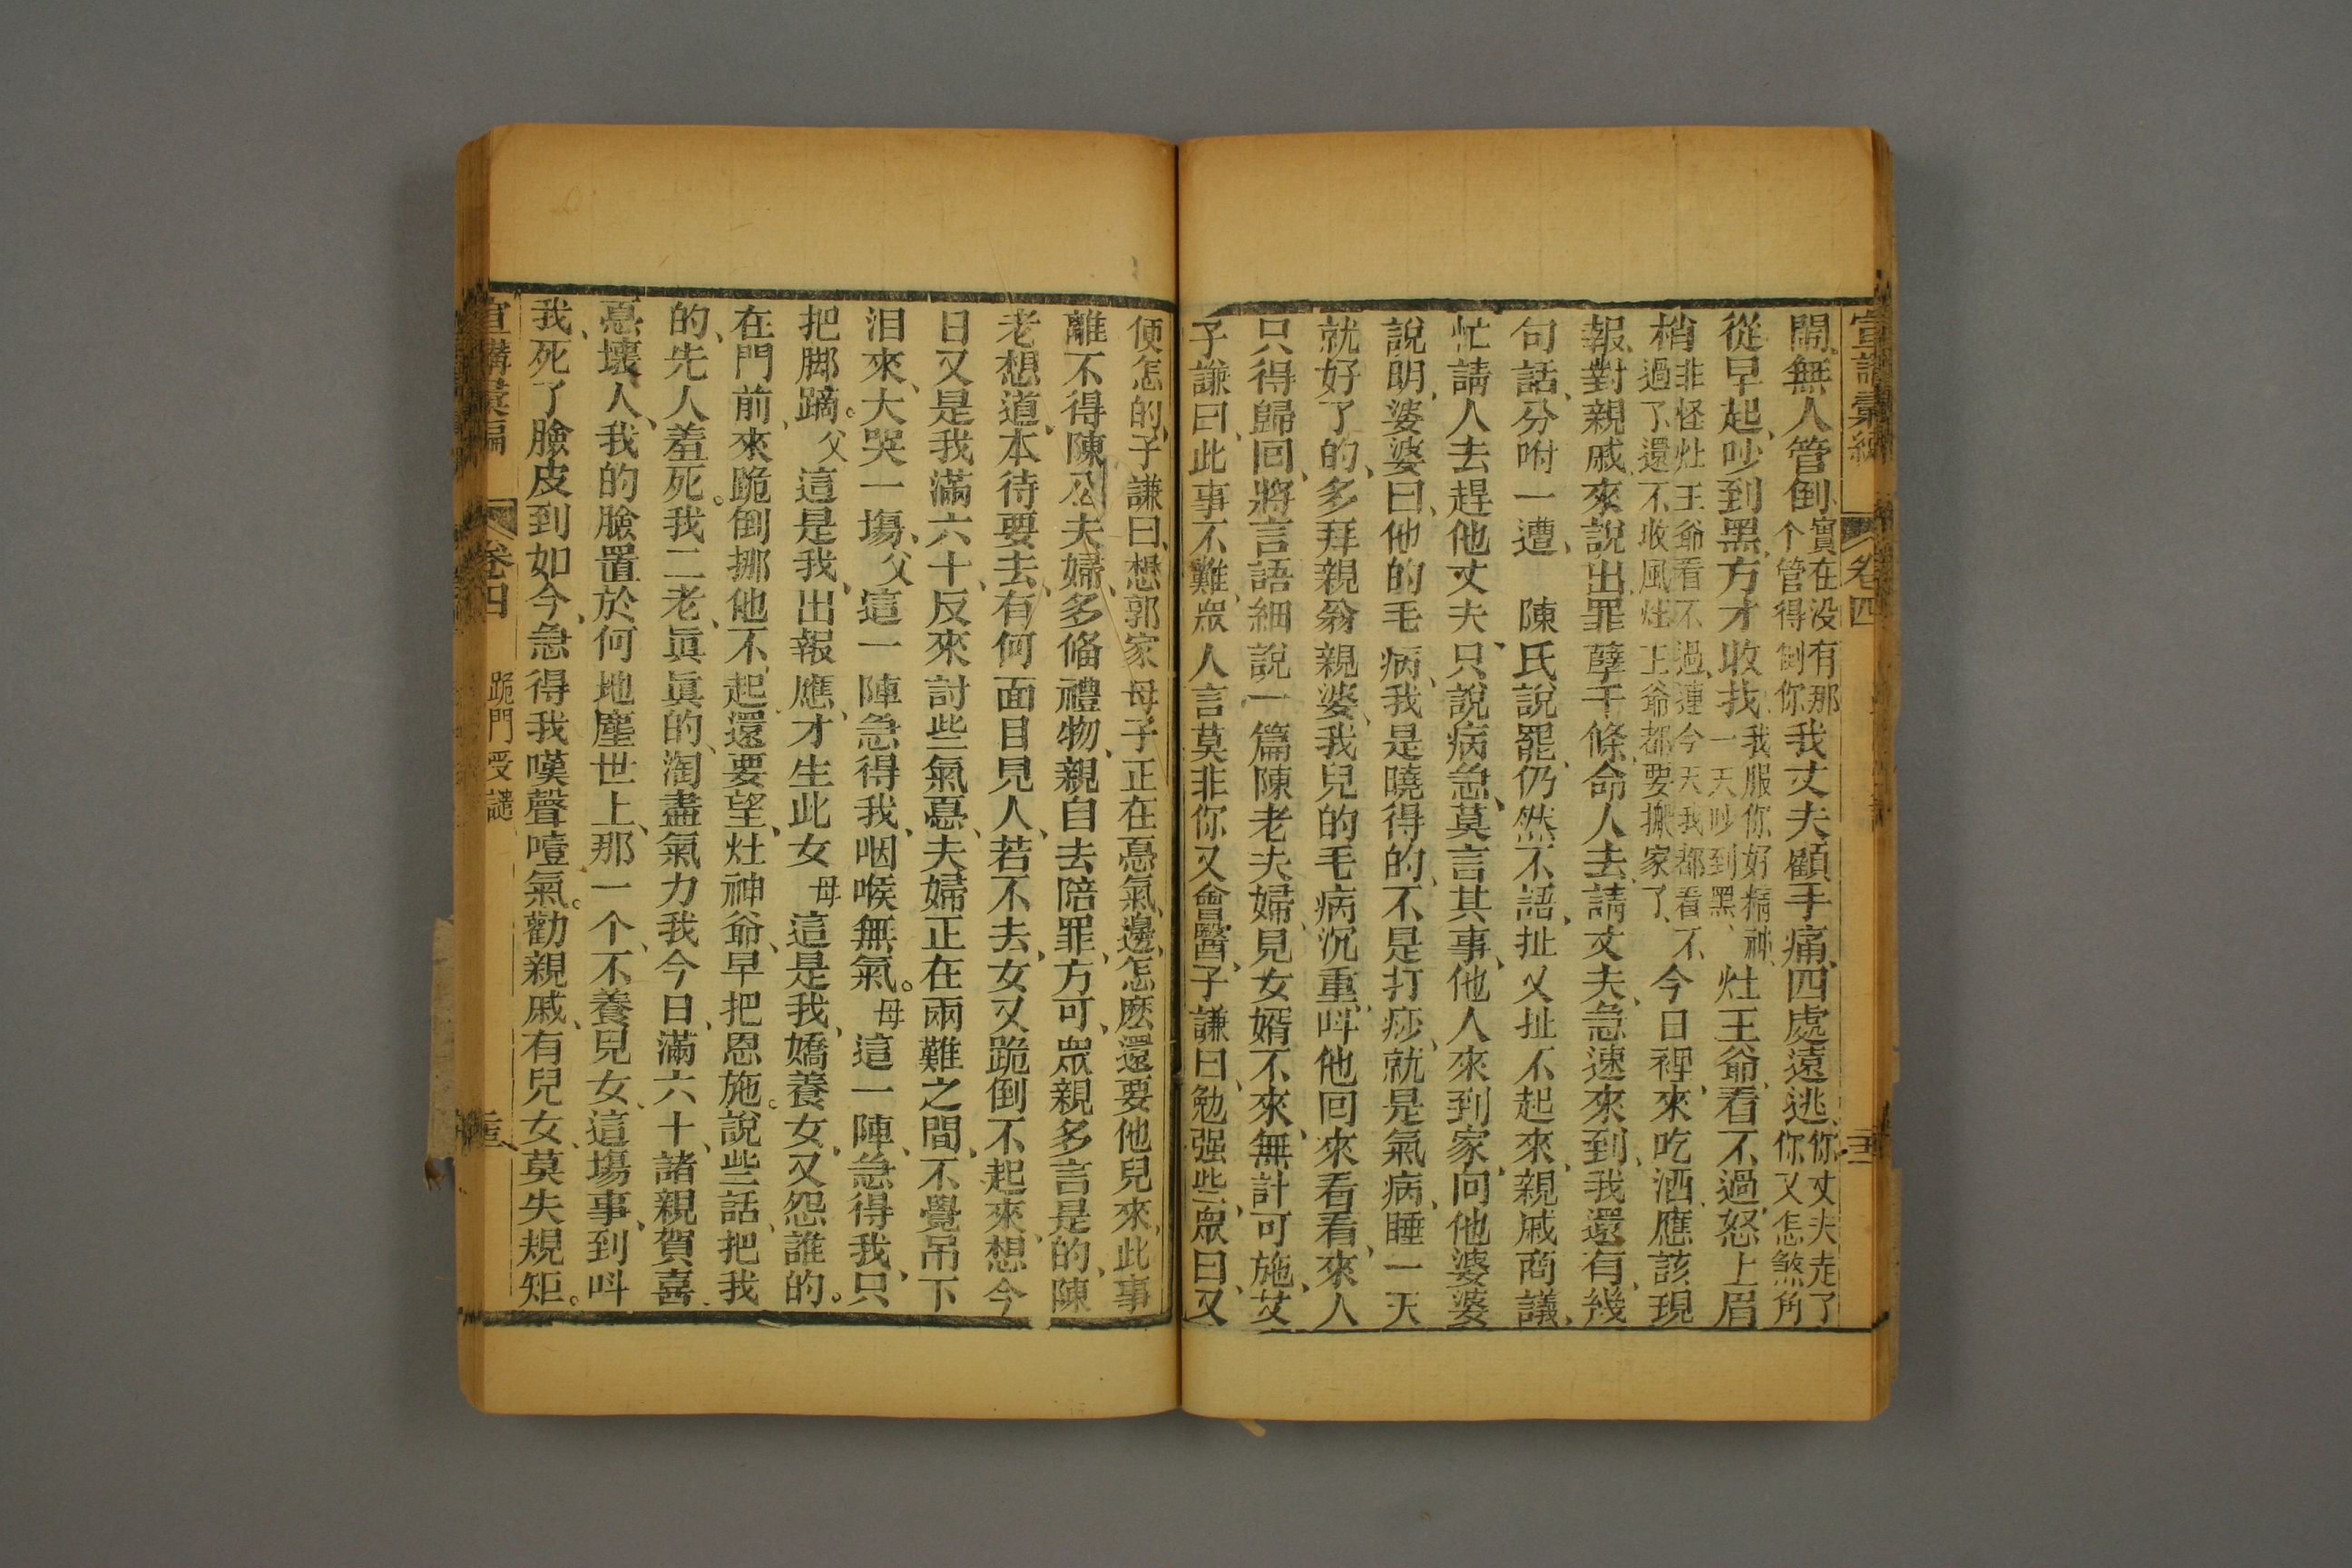 宣講彙編 卷四
鬧、無人管倒、實在没有那个管得倒你我丈夫顧手痛、四處遠逃、你丈夫走了你又怎煞角
從早起、吵到黑、方才收拔、我服你好精神、一天吵到黑、灶王爺、看不過、怒上眉
梢非怪灶王爺看不過、連今天我都看不過了、還不收風灶王爺都要搬家了、今日裡、來吃酒、應該現
報、對親戚、來說出、罪孽千條、命人去、請丈夫、急速來到、我還有、幾
句話、分咐一遭、　陳氏說罷、仍然不語、扯又扯不起來、親戚商議、
忙請人去趕他丈夫、只說病急、莫言其事、他人來到家、问他婆婆
說明、婆婆曰、他的毛病、我是曉得的、不是打痧、就是氣病、睡一天
就好了的、多拜親翁親婆、我兒的毛病沉重、呌他回來看看、來人
只得歸回、將言語細說一篇陳老夫婦、見女婿不來、無計可施、艾
子謙曰、此事不難、衆人言莫非你又會醫、子謙曰、勉强些、衆曰、又
便怎的、子謙曰、想郭家母子正在憂氣、邊、怎麽還要他兒來、此事
離不得陳公夫婦、多俻禮物、親自去陪罪、方可、衆親多言是的、陳
老想道、本待要去、有何面目見人、若不去、女又跪倒不起來、想今
日又是我滿六十、反來討些氣憂、夫婦正在兩難之間、不覺吊下
泪來、大哭一塲、父這一陣急得我、咽喉無氣。母這一陣、急得我、只
把脚蹢。父這是我、出報應、才生此女母這是我、嬌養女、又怨誰的。
在門前、來跪倒挪他不起、還要望、灶神爺、早把恩施。說些話、把我
的、先人羞死。我二老、眞眞的、淘盡氣力我今日、滿六十、諸親賀喜
憂壞人、我的臉置於何地塵世上、那一个、不養兒女、這塲事、到呌
我、死了臉皮到如今、急得我嘆聲噎氣。勸親戚、有兒女、莫失規矩。
宣講彙編 卷四 跪門受譴